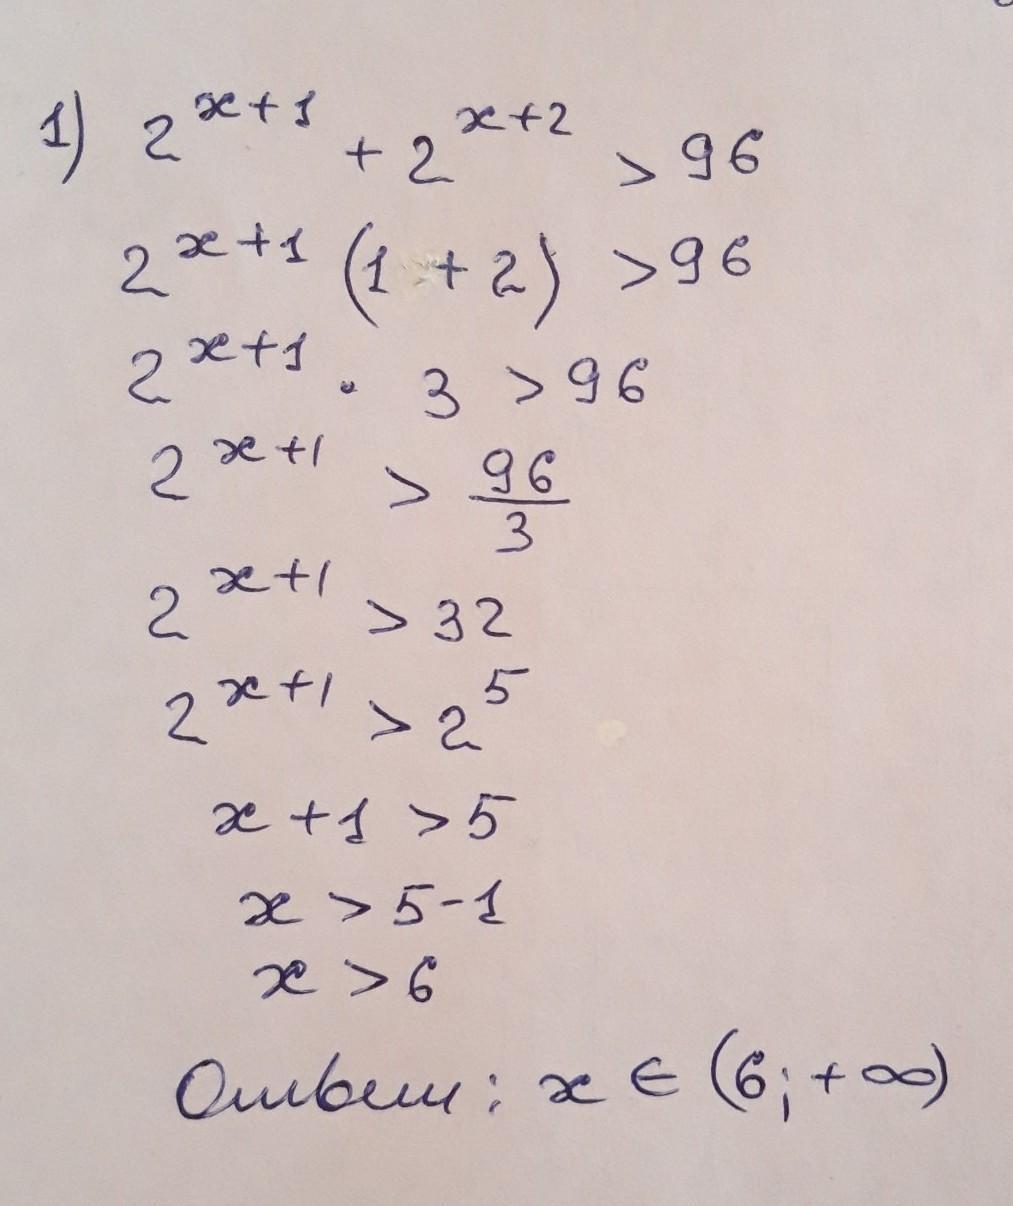 1) 2^(x+1) + 2^(x+2) > 96
2^(x+1) (1 + 2) > 96
2^(x+1) · 3 > 96
2^(x+1) > 96/3
2^(x+1) > 32
2^(x+1) > 2^5
x + 1 > 5
x > 5 - 1
x > 6
Ответ: x ∈ (6; + ∞)